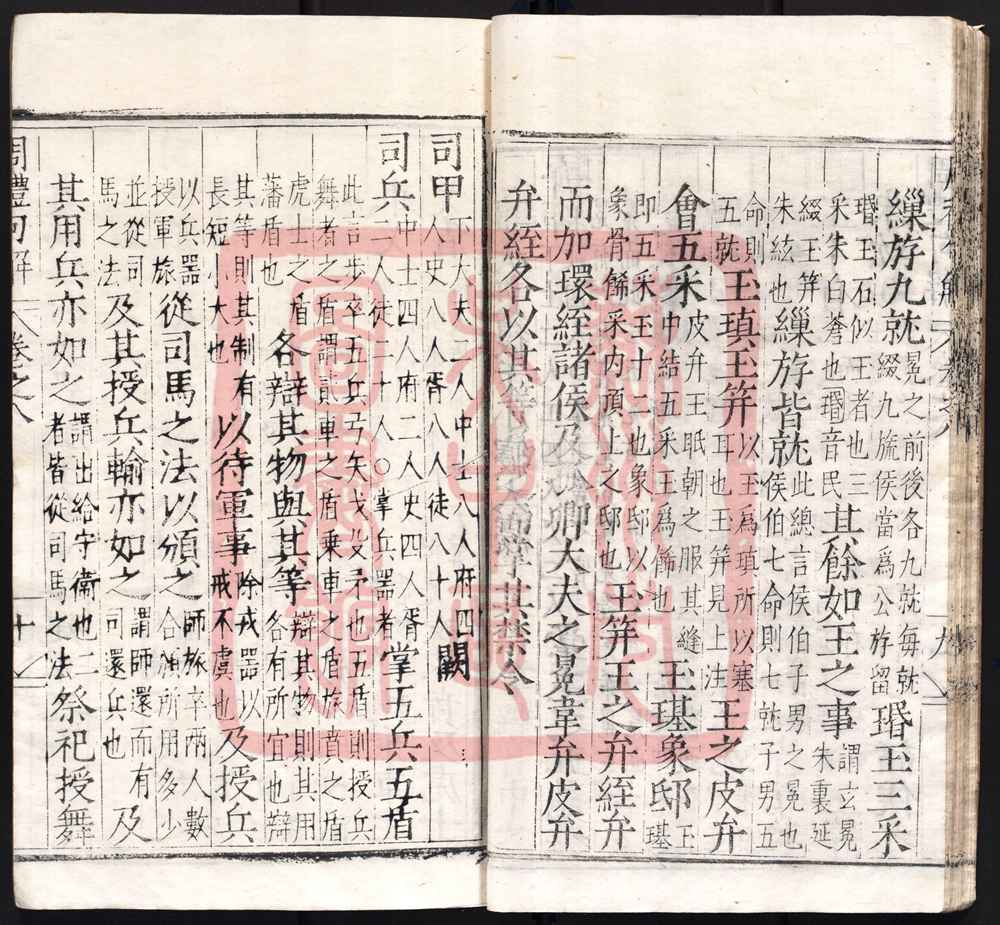 繅斿九就冕之前後各九就每就綴九旒侯當爲公斿留瑉玉三采
瑉玉石似玉者也三采朱白蒼也瑉音民其餘如王之事謂玄冕朱裏延
綴玉筓朱絃也繅斿皆就此總言侯伯子男之冕也侯伯七命則七就子男五
命則五就玉瑱玉筓以玉爲瑱所以塞耳也玉筓見上注王之皮弁
會五采皮弁王眂朝之服其縫中結五采玉爲餙也玉璂象邸玉璂
即五采玉十二也象邸以象骨餙采内頂上之邸也玉筓王之弁絰弁
而加環絰諸侯及孤卿大夫之冕韋弁皮弁
弁絰各以其等而掌其禁令
司甲下大夫二人中士八人府四人史八人胥八人徒八十人闕
司兵中士四人府二人史四人胥二人徒二十人○掌兵器者掌五兵五盾
此言步卒五兵弓矢戈殳矛也五盾則授兵舞者之盾謂貳車之盾乗車之盾旅賁之盾
虎士之盾藩盾也各辯其物與其等辯其物則其用各有所宜也辯
其等則其制有長短小大也以待軍事除戎器以戒不虞也及授兵
以兵器授軍旅從司馬之法以頒之師旅卒兩人數合頒所用多少
並從司馬之法及其授兵輸亦如之謂師還而有司還兵也及
其用兵亦如之謂出給守衛也二者皆從司馬之法祭祀授舞
周禮句解 卷之八 十